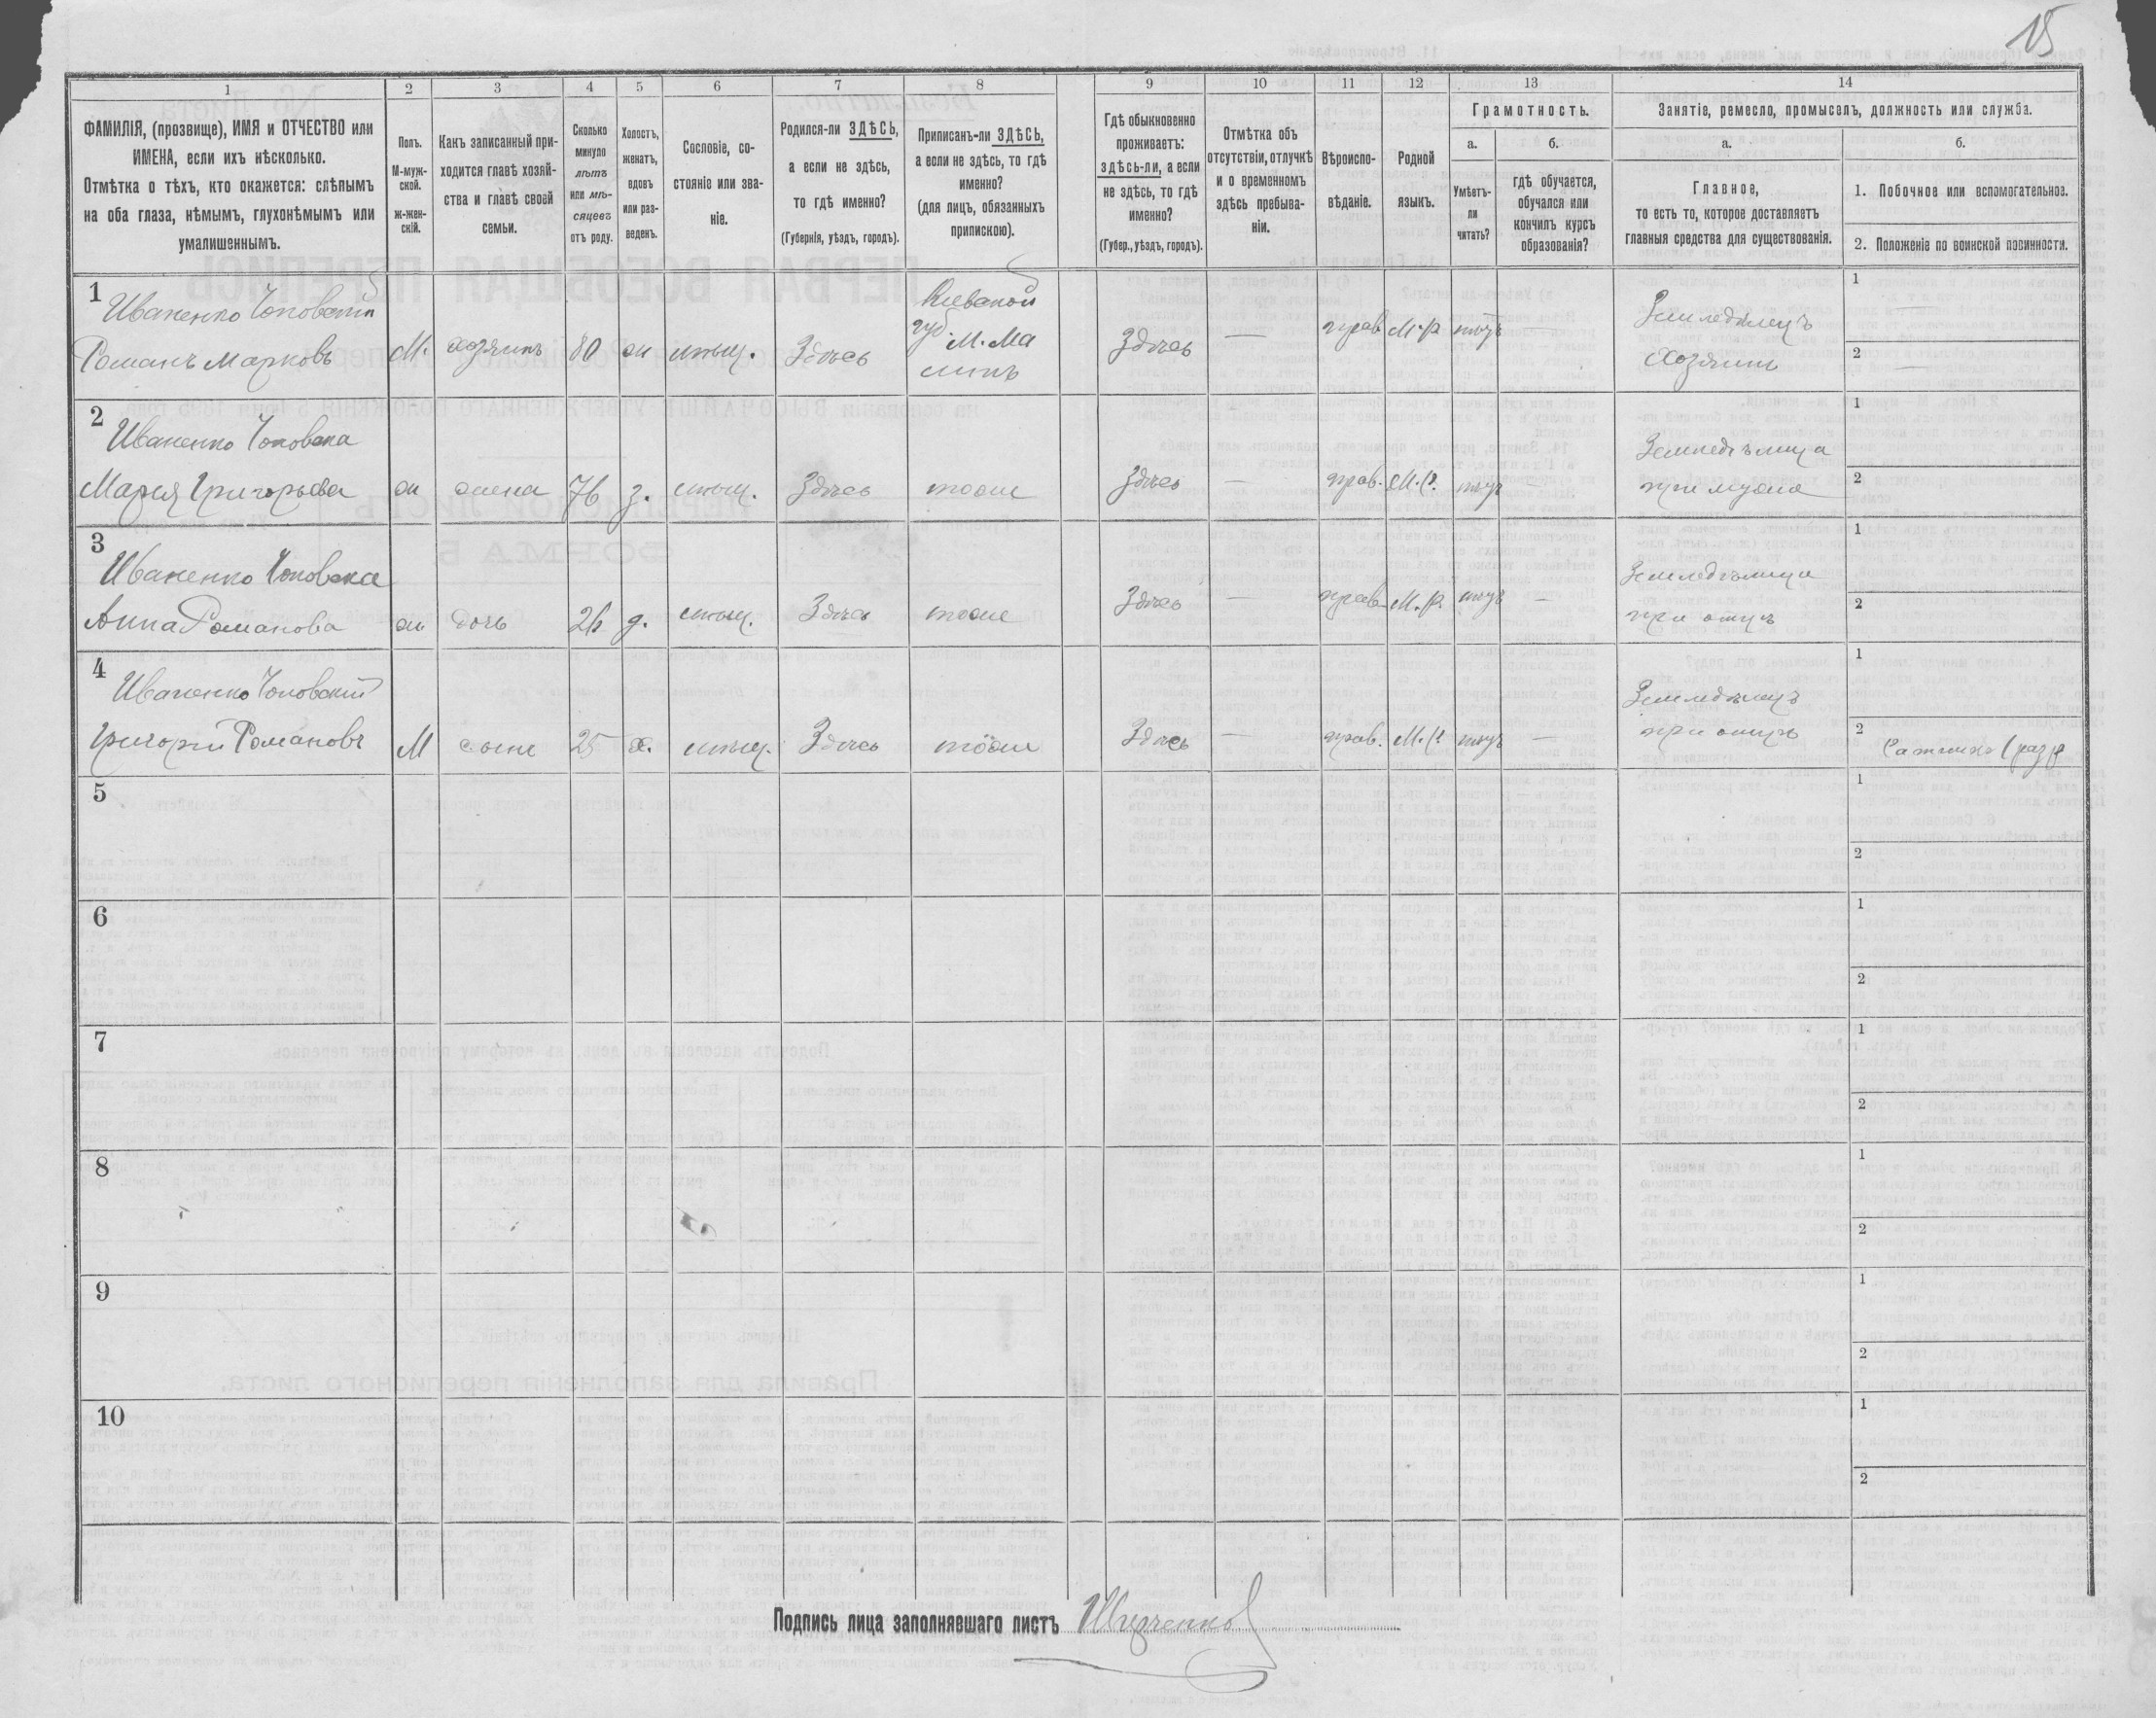 15
1
2
3
4
5
6
7
8
9
10
11
12
13
14
ФАМИЛІЯ, (прозвище), ИМЯ и ОТЧЕСТВО или
ИМЕНА, если ихъ нѣсколько.
Отмѣтка о тѣхъ, кто окажется: слѣпымъ
на оба глаза, нѣмымъ, глухонѣмымъ или
умалишеннымъ.
Полъ.
М-муж-
ской.
ж-жен-
скій.
Какъ записанный при-
ходится главѣ хозяй-
ства и главѣ своей
семьи.
Сколько
минуло
лѣтъ
или мѣ-
сяцевъ
отъ роду.
Холостъ,
женатъ,
вдовъ
или раз-
веденъ.
Сословіе, со-
стояніе или зва-
ніе.
Родился-ли ЗДѢСЬ,
а если не здѣсь,
то гдѣ именно?
(Губернія, уѣздъ, городъ).
Приписанъ-ли ЗДѢСЬ,
а если не здѣсь, то гдѣ
именно?
(для лицъ, обязанныхъ
припискою).
Гдѣ обыкновенно
проживаетъ:
здѣсь-ли, а если
не здѣсь, то гдѣ
именно?
(Губер., уѣздъ, городъ).
Отмѣтка объ
отсутствіи, отлучкѣ
и о временномъ
здѣсь пребыва-
ніи.
Вѣроиспо-
вѣданіе.
Родной
языкъ.
Грамотность.
а.
Умѣетъ-
ли
читать?
б.
гдѣ обучается,
обучался или
кончилъ курсъ
образованія?
Занятіе, ремесло, промыселъ, должность или служба.
а.
Главное,
то есть то, которое доставляетъ
главныя средства для существованія.
б.
1. Побочное или вспомогательное.
2. Положеніе по воинской повинности.
1
Иваненко Чоповскій
Романъ Марковъ
М. хозяинъ 80 ж мѣщ. Здѣсь
губ. М. Ма
линъ
Здѣсь — прав. М.р. нѣтъ —
Земледѣлецъ
Хозяинъ
1 —
2 —
2
Иваненко Чоповска
Марія Григорьева
ж жена 76 з. мѣщ. Здѣсь тоже
Здѣсь — прав. М.р. нѣтъ —
Земледѣлица
при мужѣ
1
2
3
Иваненко Чоповска
Анна Романова
ж дочь 26 д. мѣщ. Здѣсь тоже
Здѣсь — прав. М.р. нѣтъ —
Земледѣлица
при отцѣ
1
2
4
Иваненко Чоповскій
Григорій Романовъ
М сынъ 25 х. мѣщ. Здѣсь тоже
Здѣсь — прав. М.р. нѣтъ —
Земледѣлецъ
при отцѣ
1
2
5
1
2
6
1
2
7
1
2
8
1
2
9
1
2
10
1
2
Подпись лица заполнявшаго листъ